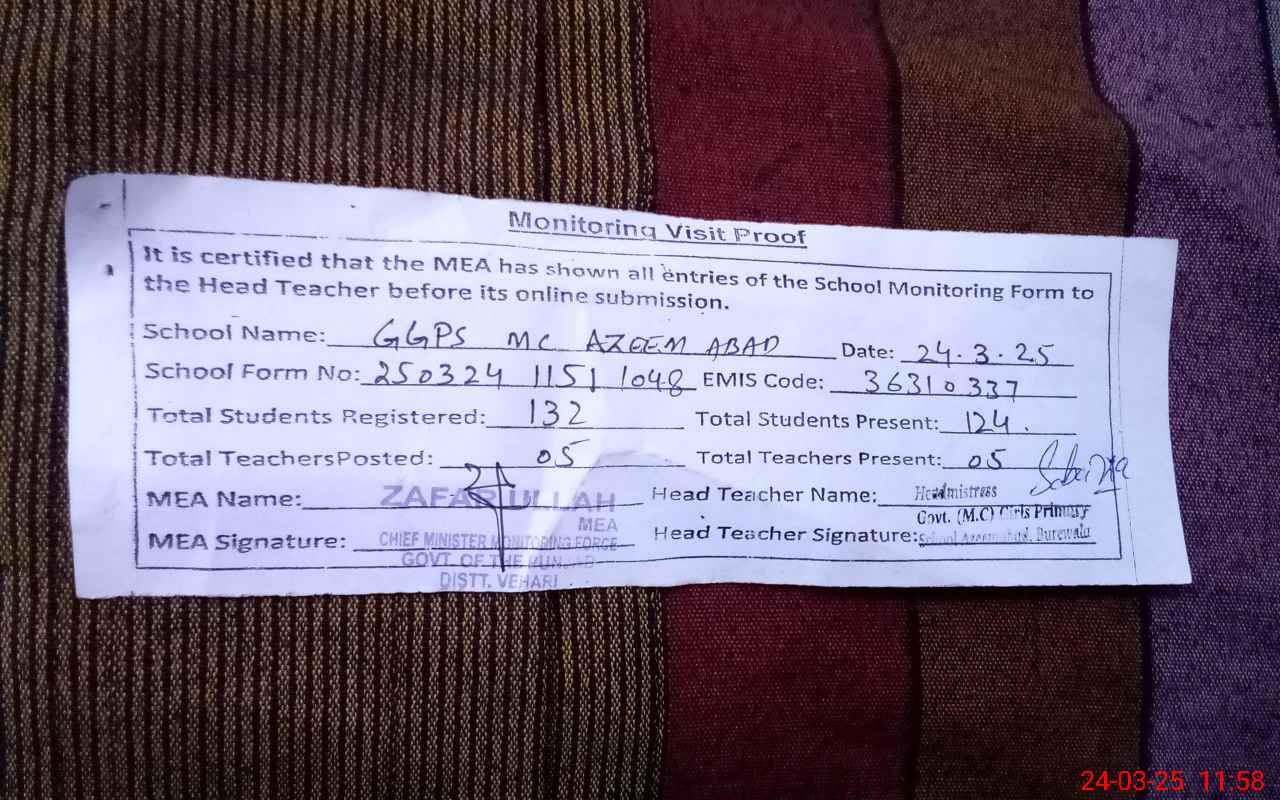 Monitoring Visit Proof
It is certified that the MEA has shown all entries of the School Monitoring Form to
the Head Teacher before its online submission.
School Name: GGPS MC AZEEM ABAD Date: 24.3.25
School Form No: 250324 1151 1048 EMIS Code: 36310337
Total Students Registered: 132 Total Students Present: 124.
Total TeachersPosted: 05 Total Teachers Present: 05
MEA Name: ZAFAR ULLAH Head Teacher Name: Headmistress
MEA Govt. (M.C) Girls Primary
MEA Signature: CHIEF MINISTER MONITORING FORCE Head Teacher Signature: School Azeemabad, Burewala
GOVT. OF THE PUNJAB
DISTT. VEHARI
24-03-25 11:58